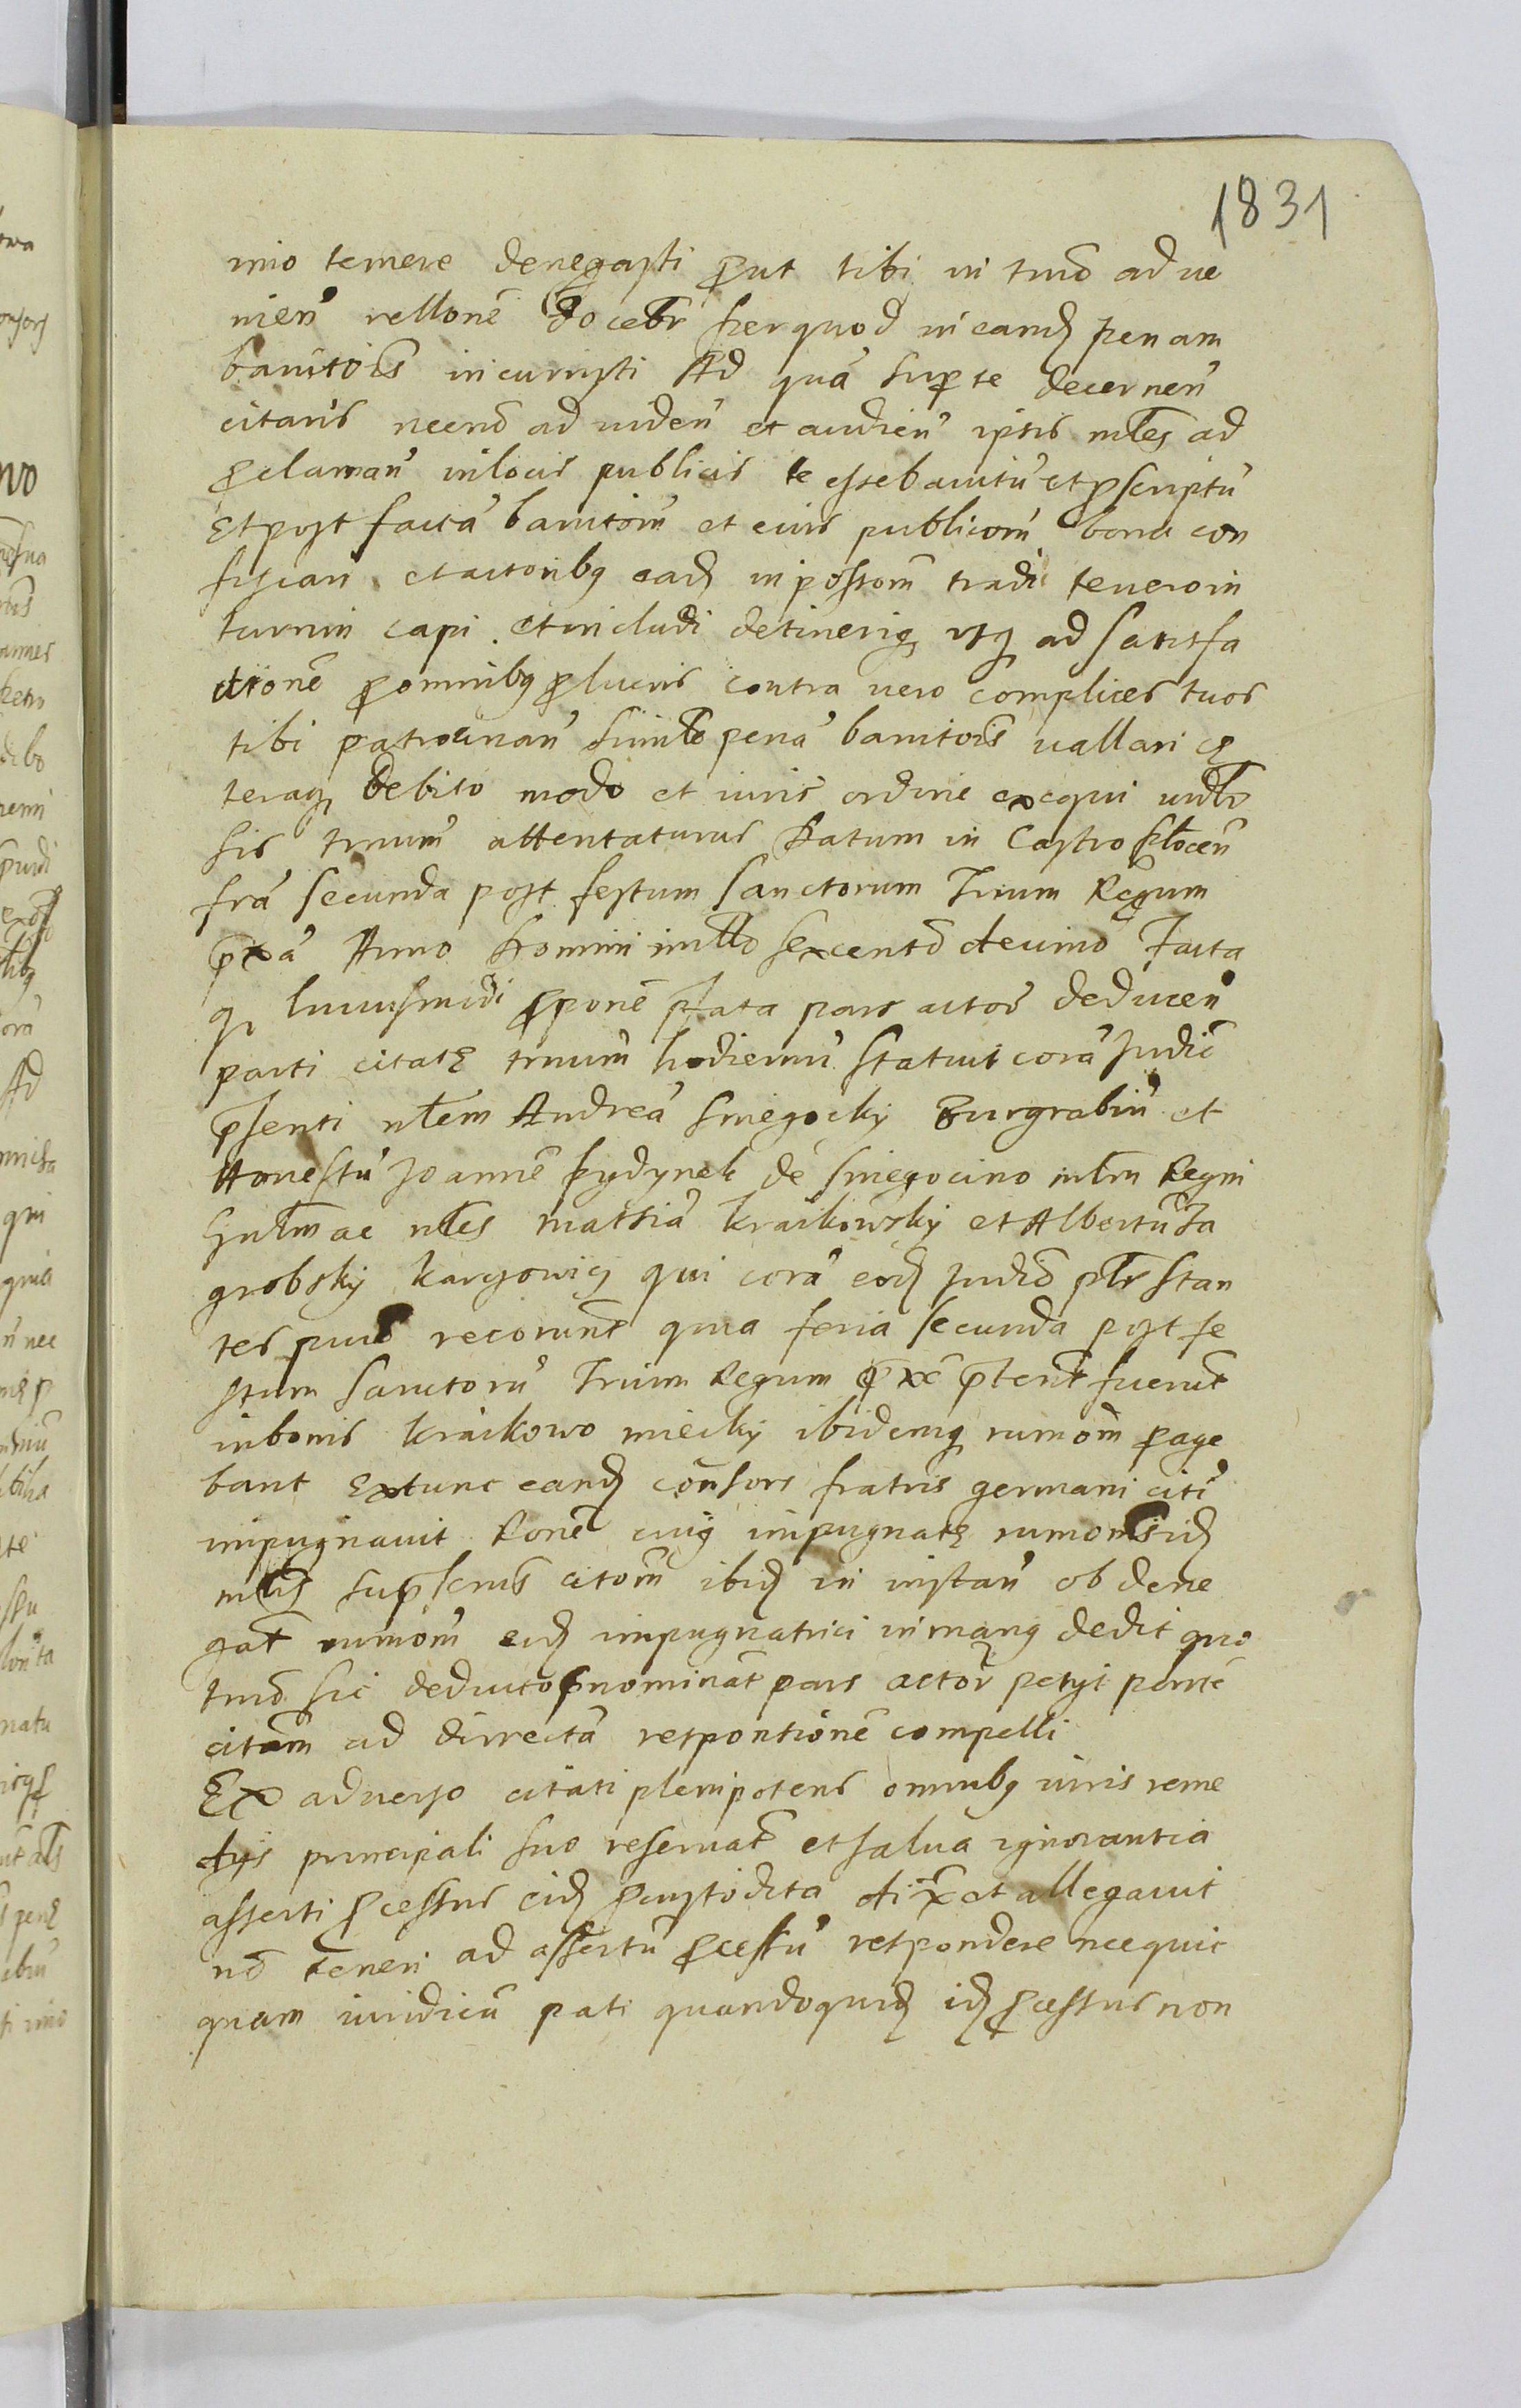 1831
mio temere denegasti put tibi in tmō adue
nien̄ rellonē docebr̄ perquod in eand penam
banitōis incurristi Ad quā supte decernen̄
citaris necnō ad viden̄ et audien̄ ipsis nłes ad
pclaman̄ inlocis publicis te essebanitū et pscriptū
Et post factā banitōm̄ et eius publicōm̄ bona con
fiscari et actoribꝫ ead in possōm̄ tradi te vero in
turrim capi et includi detineriqꝫ usqꝫ ad satisfa
ctionē pomnibꝫ plucris contra vero complices tuos
tibi patrocinan̄ simłe penā banitōis vallari cę
teraqꝫ debito modo et iuris ordine exequi vidłr
sis tmum̄ attentaturus Datum in Castro płocen̄
frā secunda post festum Sanctorum Trium Regum
pxā Anno Domini millō sexcentō decimō Facta
qꝫ huiusmōdi pponē pfata pars actor̄ deducen̄
parti citatę tmum̄ hodiernū statuit corā Judic̄
psenti nłem Andreā Sniegocky Burgrabiū et
Honestū Joannē Dydynek de Sniegocino młm Regni
gnłm ac nłes Mathiā Kraikowsky et Albertū Ja
grobsky Kargowicz qui corā eod Judiō płr stan
tes recorunt quia feria secunda post fe
stum Sanctorū Trium Regum pxē pterit̄ fuerunt
inbonis Kraikowo miecky ibidemqꝫ rumōm̄ page
bant Extunc eand consors fratris germani citī
impugnavit Ronē cuiꝫ impugnatę rumōnis id
młis supscrus citōm̄ ibid in instan̄ ob dene
gat̄ rumōm̄ eid impugnatrici inmanꝫ dedit quo
tmō sic deducto pnominat̄ pars actor̄ petyt partē
citam̄ ad directā responsionē compelli
Ex adverso citati plenipotens omnibꝫ iuris reme
dys principali suo reservat̄ et salua ignorantia
asserti pcessus eid pcustodita dix̄ et allegavit
nō teneri ad assertū pcessū respondere nec quic
quam iuridicū pati quandoquid id pcessus non